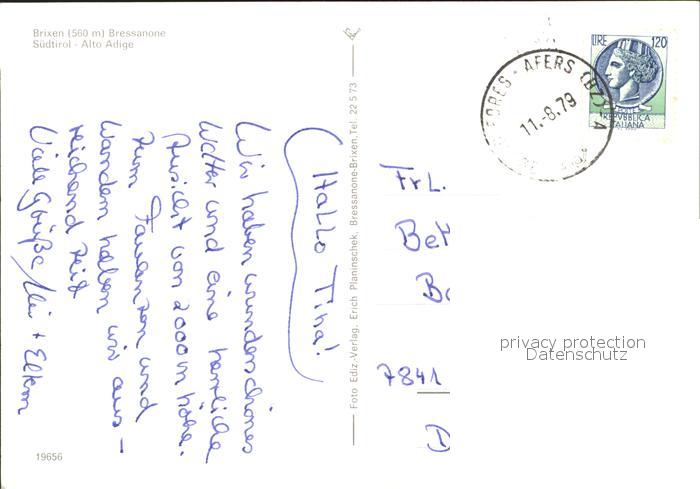 Brixen (560 m) Bressanone
Südtirol - Alto Adige
Hallo Tina!
Wir haben wunderschönes
Wetter und eine herrliche
Aussicht von 2000 m Höhe.
Zum Faulenzen und
Wandern haben wir aus-
reichend Zeit
Viele Grüße + Eltern
19656
Foto Ediz.-Verlag. Erich Planinschek, Bressanone-Brixen, Tel. 22 5 73
LIRE 120
REPVBBLICA
ITALIANA
AFERS (BZ)
11.-8.79
Frl.
7841
privacy protection
Datenschutz